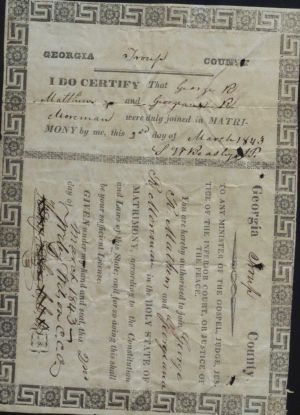 GEORGIA Troup COUNTY
I DO CERTIFY That George R
Matthews and Georgeann R
Moreman were duly joined in MATRI-
MONY by me, this 2nd day of March 1843
Georgia Troup County
TO ANY MINISTER OF THE GOSPEL, JUDGE, JUS-
TICE OF THE INFERIOR COURT, OR JUSTICE OF
THE PEACE.
You are hereby authorized to join George
R Matthews and Georgeann
R Moreman in the HOLY STATE OF
MATRIMONY according to the Constitution
and Laws of this State; and for so doing this shall
be your sufficient License.
GIVEN under my hand and seal, this 2nd
day of March 1843